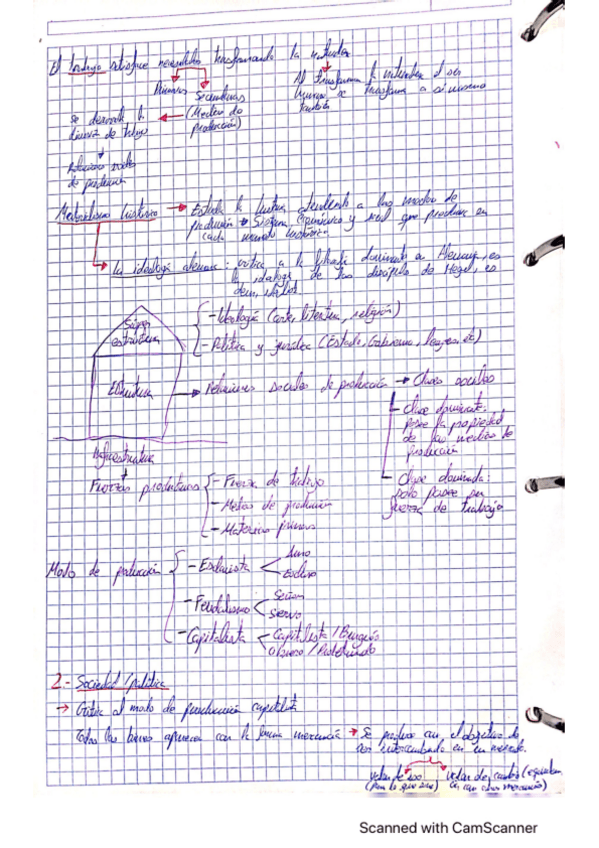 El trabajo satisface necesidades transformando la naturaleza
Primarias
Secundarias
(Medios de
producción)
Al transformar la naturaleza el ser
humano se transforma a sí mismo
también
Se desarrolla la
división de trabajo
Relaciones sociales
de producción
Materialismo histórico → Estudia la historia atendiendo a los modos de
producción → Sistema económico y social que produce en
cada momento histórico
La ideología alemana: crítica a la filosofía dominante en Alemania, es
la ideología de los discípulos de Hegel, es
decir,
Super
estructura
- Ideología (arte, literatura, religión)
- Política y jurídica (Estado, Gobierno, leyes,
Estructura → Relaciones sociales de producción → Clases sociales
- Clase dominante:
posee la propiedad
de los medios de
producción
- Clase dominada:
solo posee su
fuerza de trabajo
Infraestructura
Fuerzas productivas
- Fuerza de trabajo
- Medios de producción
- Materias primas
Modo de producción
- Esclavista
Amo
Esclavo
- Feudalismo
Señor
Siervo
- Capitalista
Capitalista / Burgués
obrero / Proletariado
2.- Sociedad / política
→ Crítica al modo de producción capitalista
Todos los bienes aparecen con la forma mercancía → Se produce con el objetivo de
ser intercambiado en un mercado.
valor de uso
(para lo que sirve)
valor de cambio
con otras mercancías)
Scanned with CamScanner